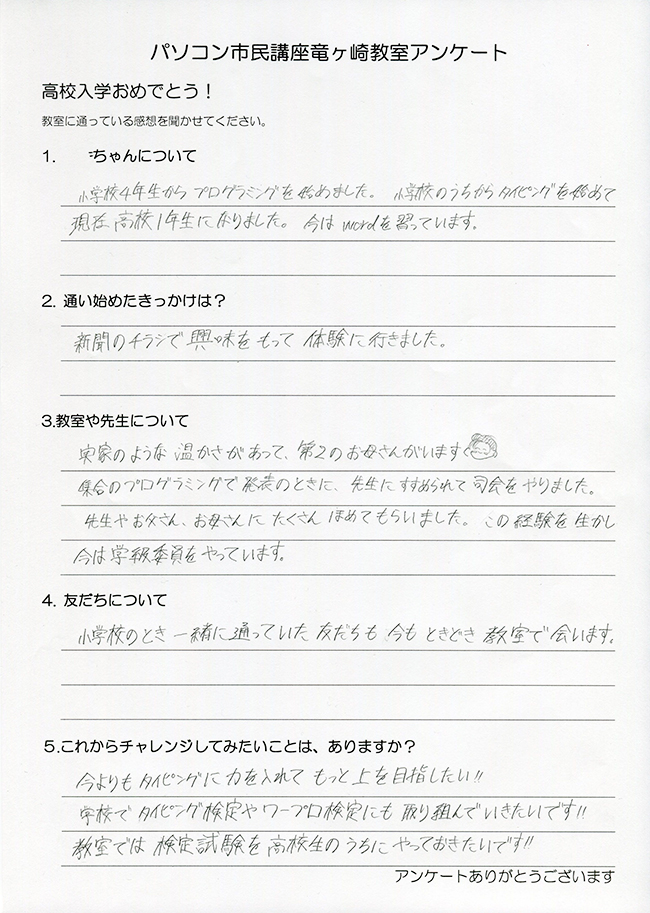 パソコン市民講座竜ヶ崎教室アンケート
高校入学おめでとう！
教室に通っている感想を聞かせてください。
1. ちゃんについて
小学校4年生から プログラミングを始めました。 小学校のうちからタイピングを始めて
現在高校1年生になりました。 今は wordを習っています。
2. 通い始めたきっかけは？
新聞のチラシで興味をもって 体験に行きました。
3.教室や先生について
実家のような温かさがあって、第2のお母さんがいます
集合のプログラミングで発表のときに、先生にすすめられて司会をやりました。
先生やお父さん、お母さんにたくさんほめてもらいました。この経験を生かし
今は学級委員をやっています。
4. 友だちについて
小学校のとき 一緒に通っていた友だちも今もときどき 教室で会います。
5.これからチャレンジしてみたいことは、ありますか？
今よりもタイピングに力を入れて もっと上を目指したい!!
学校でタイピング検定やワープロ検定にも取り組んでいきたいです!!
教室では検定試験を高校生のうちにやっておきたいです!!
アンケートありがとうございます